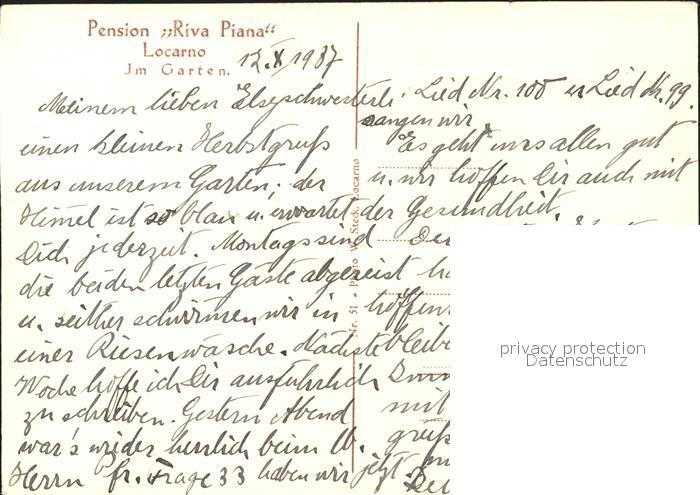 Pension „Riva Piana“
Locarno
Jm Garten.
12. X 1937
Meinem lieben Elseschwesterli
einen kleinen Herbstgruß
aus unserem Garten; der
Himel ist so blau u. erwartet
Dich jederzeit. Montags sind
die beiden letzten Gäste abgereist
u. seither schwimen wir in
einer Riesenwäsche. Nächste
Woche hoffe ich Dir ausführlich
zu schreiben. Gestern Abend
war's wieder herrlich beim lb.
Herrn Fr. Frage 33 haben wir jetzt.
Nr. 51 • Photo W. Steck, Locarno
Lied Nr. 100 u Lied Nr. 99
sangen wir.
Es geht uns allen gut
u. wir hoffen Dir auch mit
der Gesundheit.
hoffen
bleibe
mit
privacy protection
Datenschutz